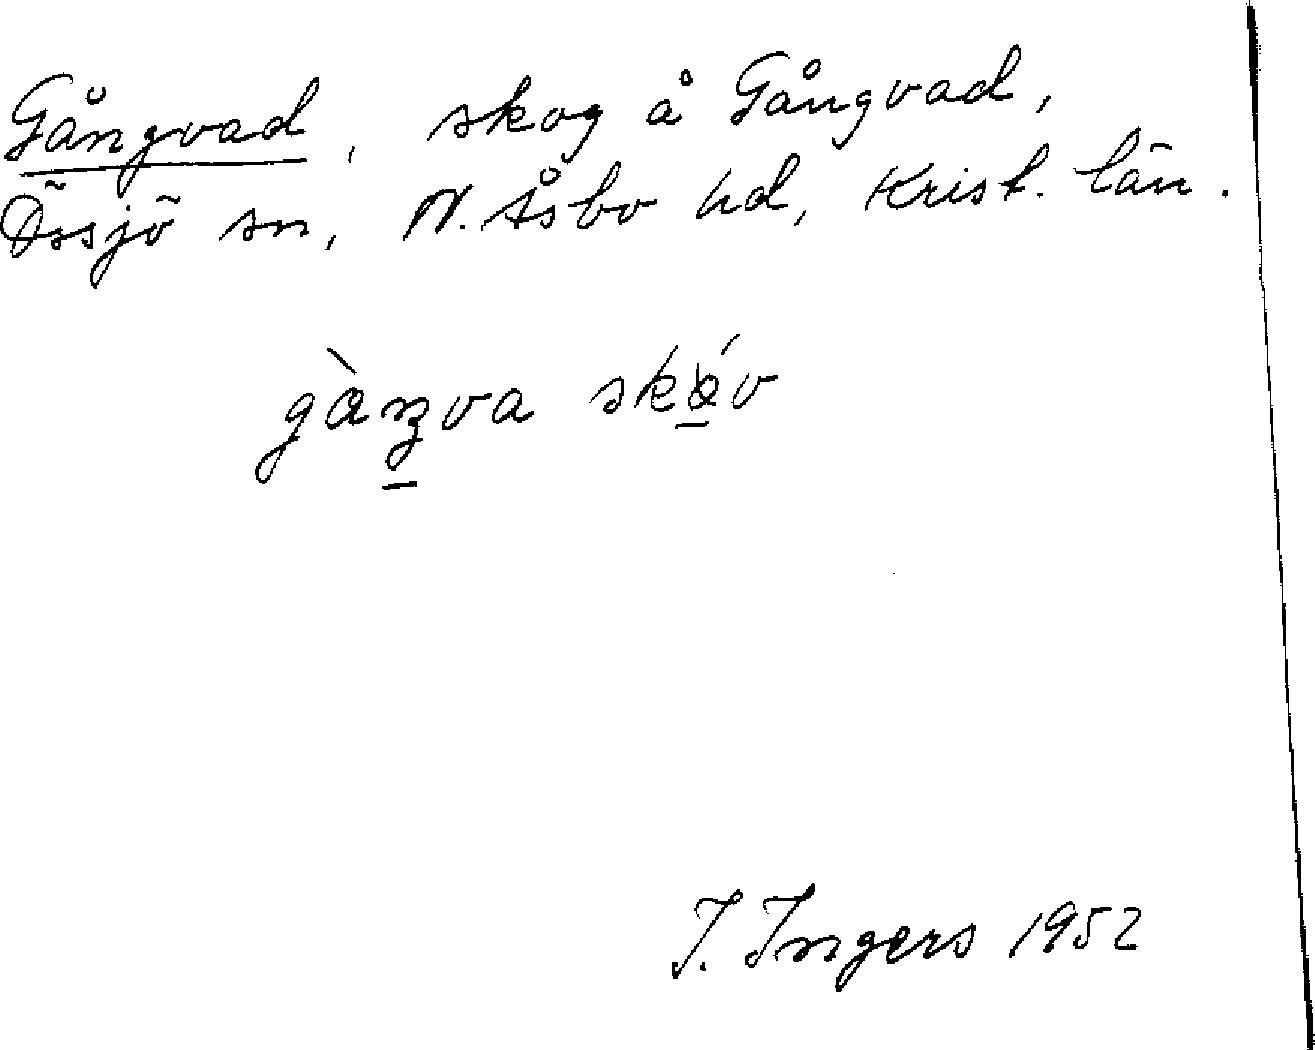 Gångvad, skog å Gångvad,
Össjö sn, N. Åsbo hd, Krist. län.
gàŋva skǻv
I. Ingers 1952